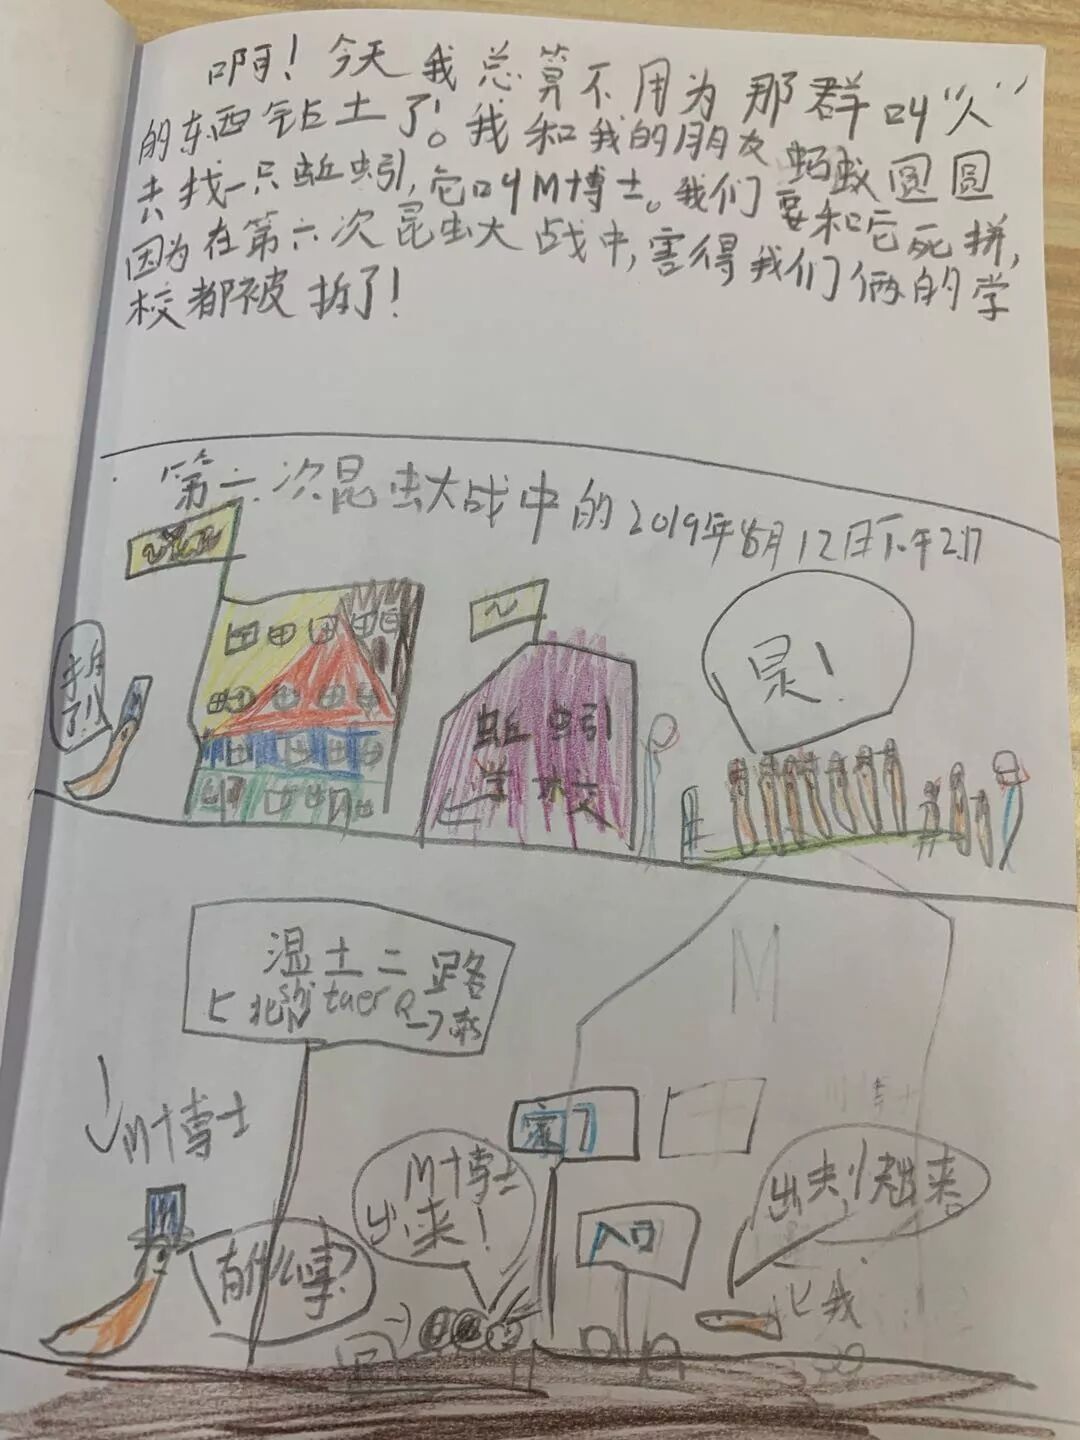 啊！今天我总算不用为那群叫“人”
的东西钻土了。我和我的朋友蚂蚁圆圆
去找一只蚯蚓，它叫M博士。我们要和它死拼，
因为在第六次昆虫大战中，害得我们俩的学
校都被拆了！
第六次昆虫大战中的2019年8月12日下午2:17
拆了！
蚯蚓
学校
是！
湿土二路
北 shi tu er R 东
M
M博士
家
入口
M博士
出来！
有什么事？
出来！快出来。
我